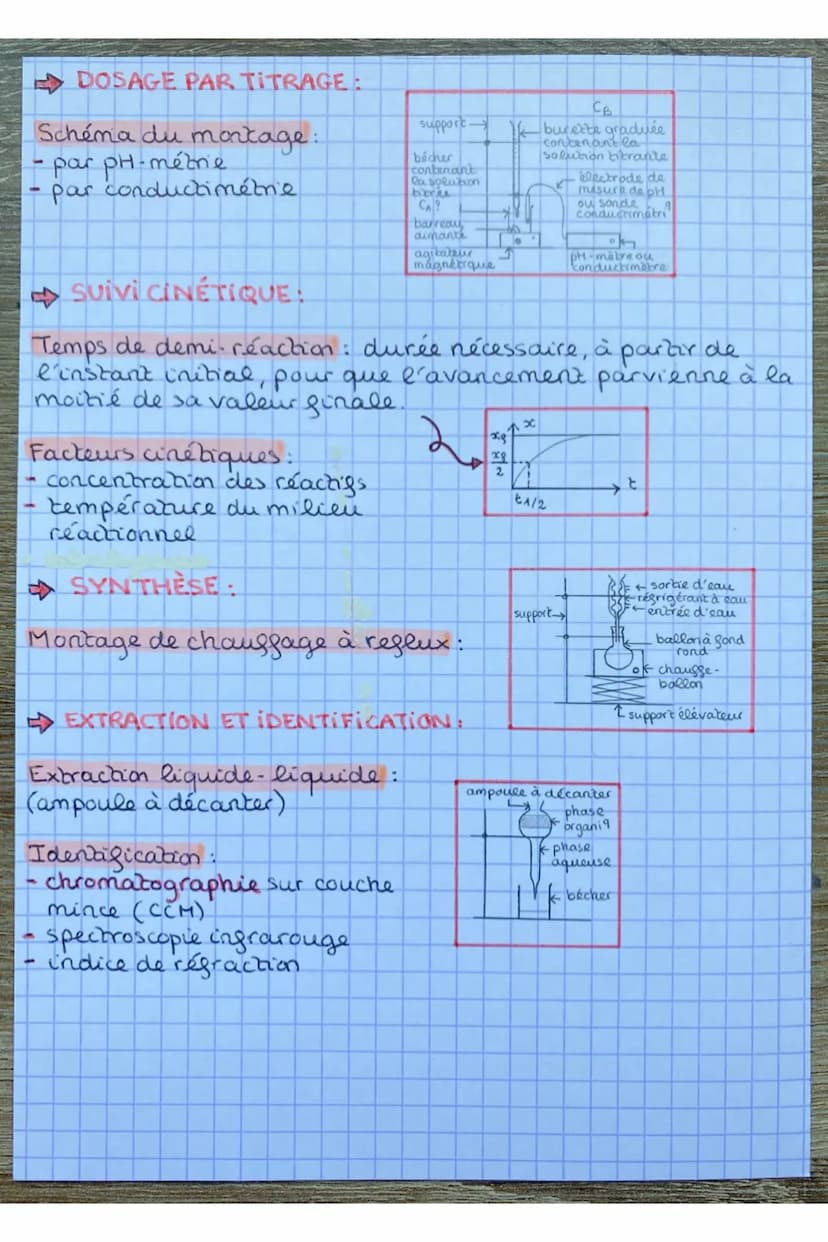 DOSAGE PAR TITRAGE :
Schéma du montage :
- par pH-métrie
- par conductimétrie
support
CB
burette graduée
contenant la
solution titrante
bécher
contenant
la solution
titrée
CA ?
électrode de
mesure de pH
ou sonde
conductimétriq
barreau
aimanté
agitateur
magnétique
pH-mètre ou
conductimètre
SUIVI CINÉTIQUE :
Temps de demi-réaction : durée nécessaire, à partir de
l'instant initial, pour que l'avancement parvienne à la
moitié de sa valeur finale.
Facteurs cinétiques :
- concentration des réactifs
- température du milieu
réactionnel
x
xf
xf/2
t
t1/2
SYNTHÈSE :
Montage de chauffage à reflux :
sortie d'eau
réfrigérant à eau
entrée d'eau
support
ballon à fond
rond
chauffe-
ballon
support élévateur
EXTRACTION ET IDENTIFICATION :
Extraction liquide-liquide :
(ampoule à décanter)
ampoule à décanter
phase
organiq
phase
aqueuse
bécher
Identification :
- chromatographie sur couche
mince (CCM)
- spectroscopie infrarouge
- indice de réfraction